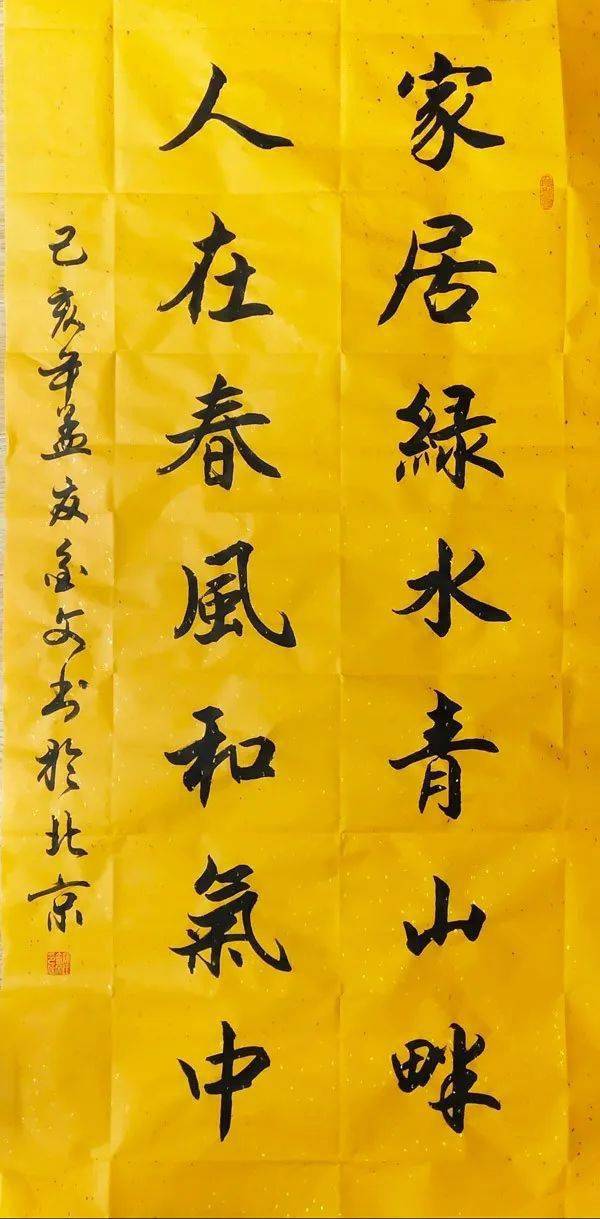 家居緑水青山畔
人在春風和氣中
己亥年孟夏金文书於北京